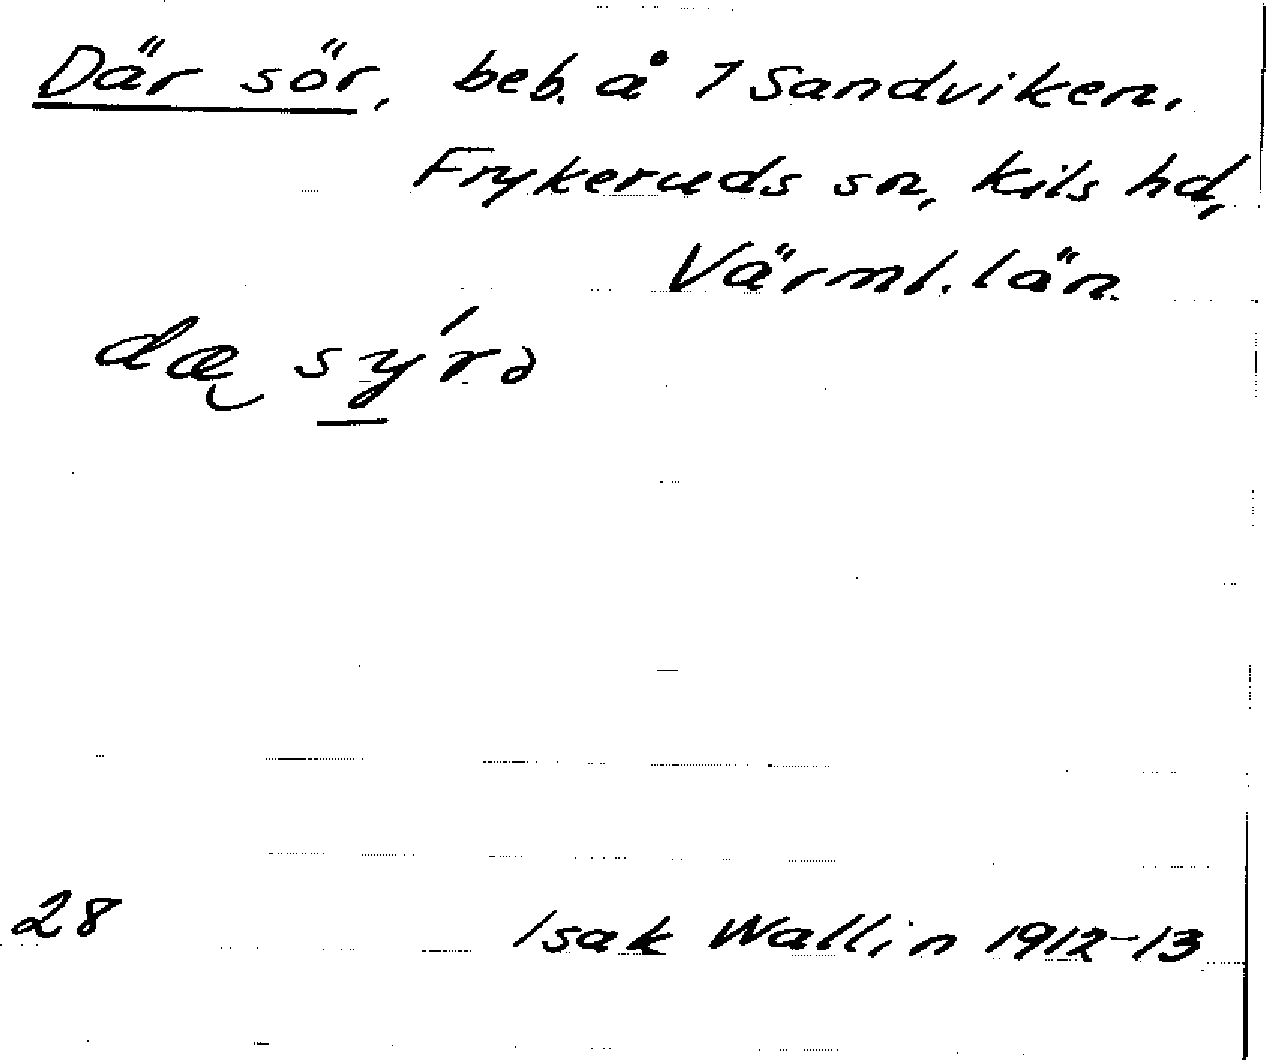 Där sör, beb. å 1 Sandviken.
Frykeruds sn, Kils hd,
Värml. län.
dæ sýrə
28 Isak Wallin 1912-13